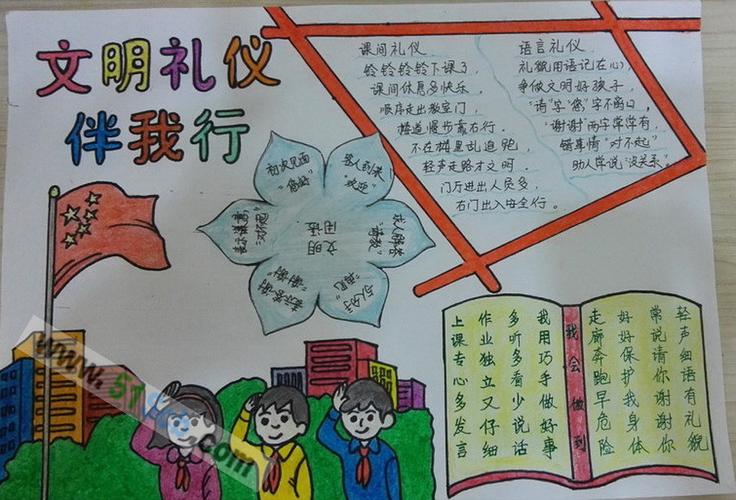 文明礼仪
伴我行
课间礼仪
铃铃铃铃下课了,
课间休息多快乐,
顺序走出教室门,
楼道慢步靠右行.
不在楼里乱追跑,
轻声走路才文明.
门厅进出人员多,
右门出入安全行。
语言礼仪
礼貌用语记在心
争做文明好孩子,
"请"字"您"字不离口,
"谢谢"两字常常有,
错事情"对不起"
助人常说"没关系"。
文明
用语
初次见面
"您好"
客人到来
"欢迎"
求人解答
"请教"
与人分手
"再见"
表示答谢
"谢谢"
表示歉意
"对不起"
轻声细语有礼貌
常说请你谢谢你
好好保护我身体
走廊奔跑早危险
我会做到
我用巧手做好事
多听多看少说话
作业独立又仔细
上课专心多发言